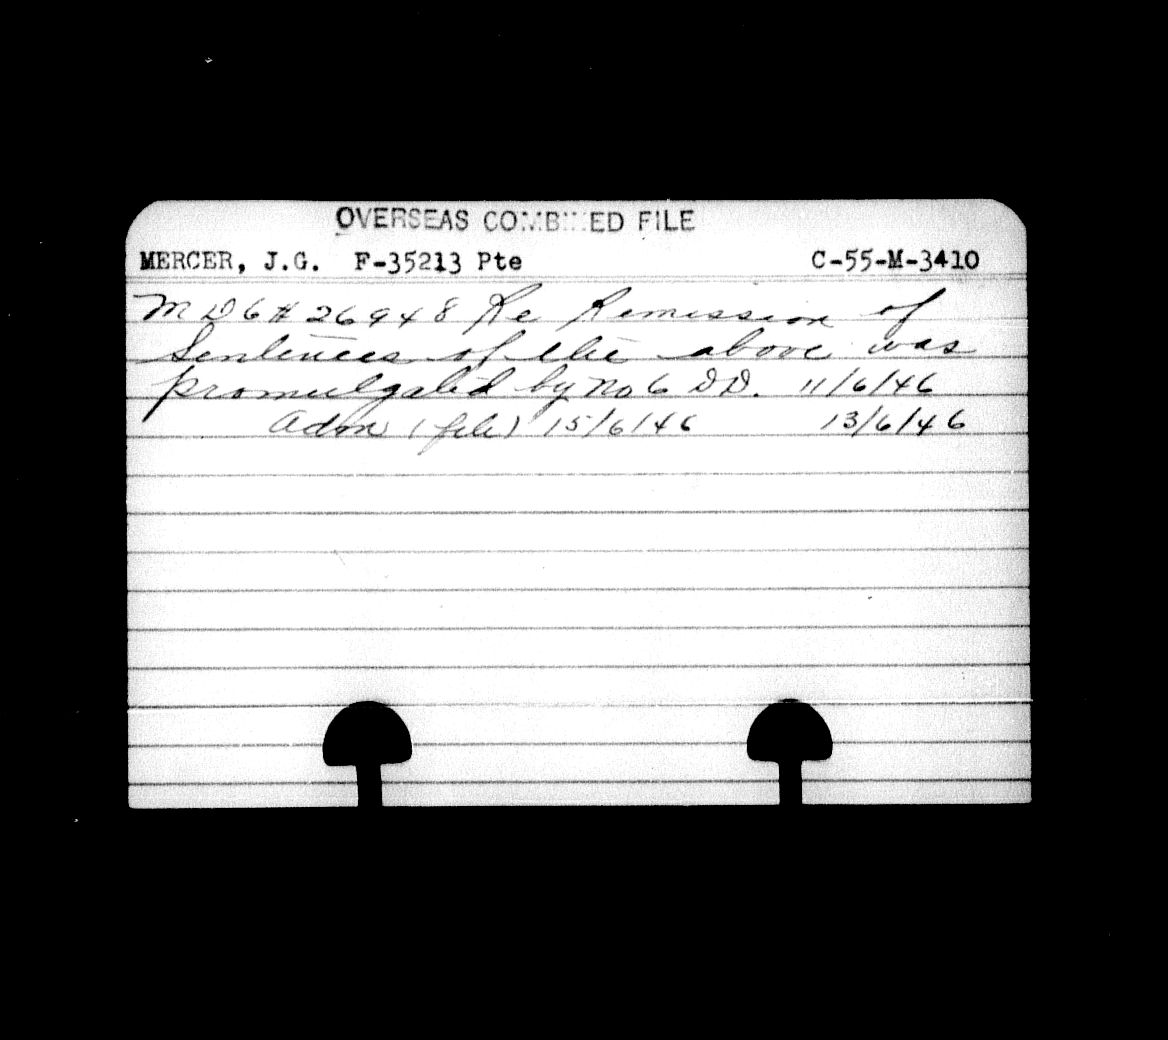 OVERSEAS COMBINED FILE
MERCER, J.G. F-35213 Pte C-55-M-3410
M D 6 # 26948 Re Remission of
Sentences of the above was
promulgated by No 6 D D. 11/6/46
Adm (file) 15/6/46 13/6/46